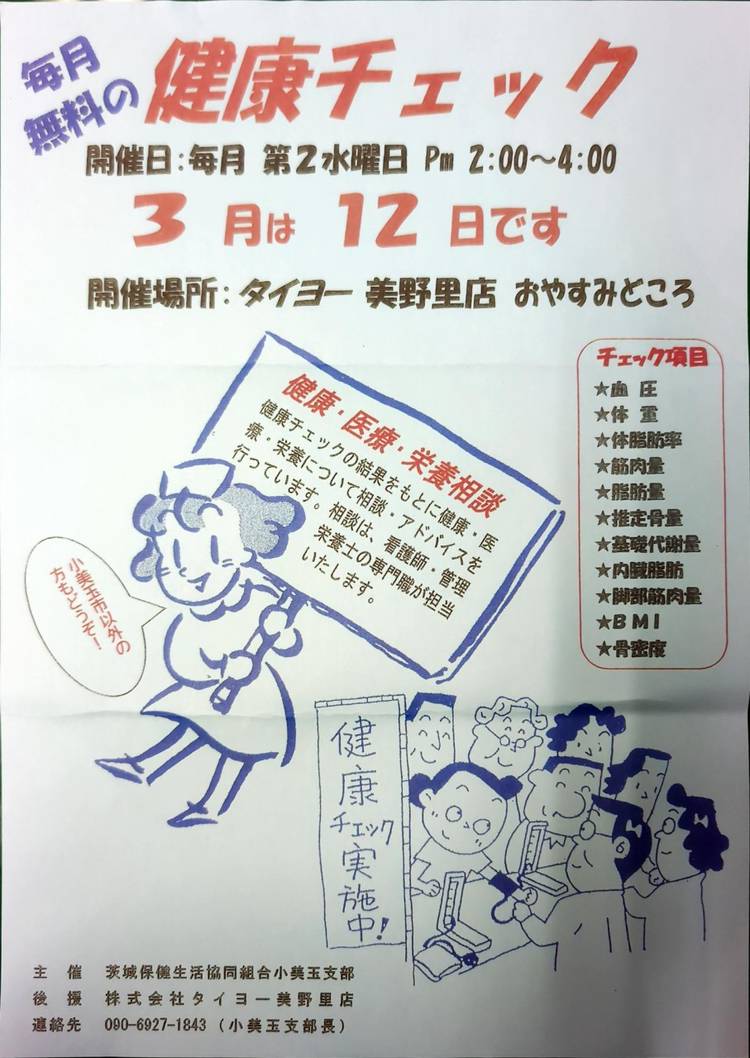 毎月
無料の
健康チェック
開催日：毎月 第２水曜日 Pm 2:00～4:00
3 月は 12 日です
開催場所：タイヨー 美野里店 おやすみどころ
健康・医療・栄養相談
健康チェックの結果をもとに健康・医
療・栄養について相談・アドバイスを
行っています。相談は、看護師・管理
栄養士の専門職が担当
いたします。
チェック項目
★血 圧
★体 重
★体脂肪率
★筋肉量
★脂肪量
★推定骨量
★基礎代謝量
★内臓脂肪
★脚部筋肉量
★ＢＭＩ
★骨密度
小美玉市以外の
方もどうぞ！
健康チェック実施中!
主 催 茨城保健生活協同組合小美玉支部
後 援 株式会社タイヨー美野里店
連絡先 090-6927-1843（小美玉支部長）